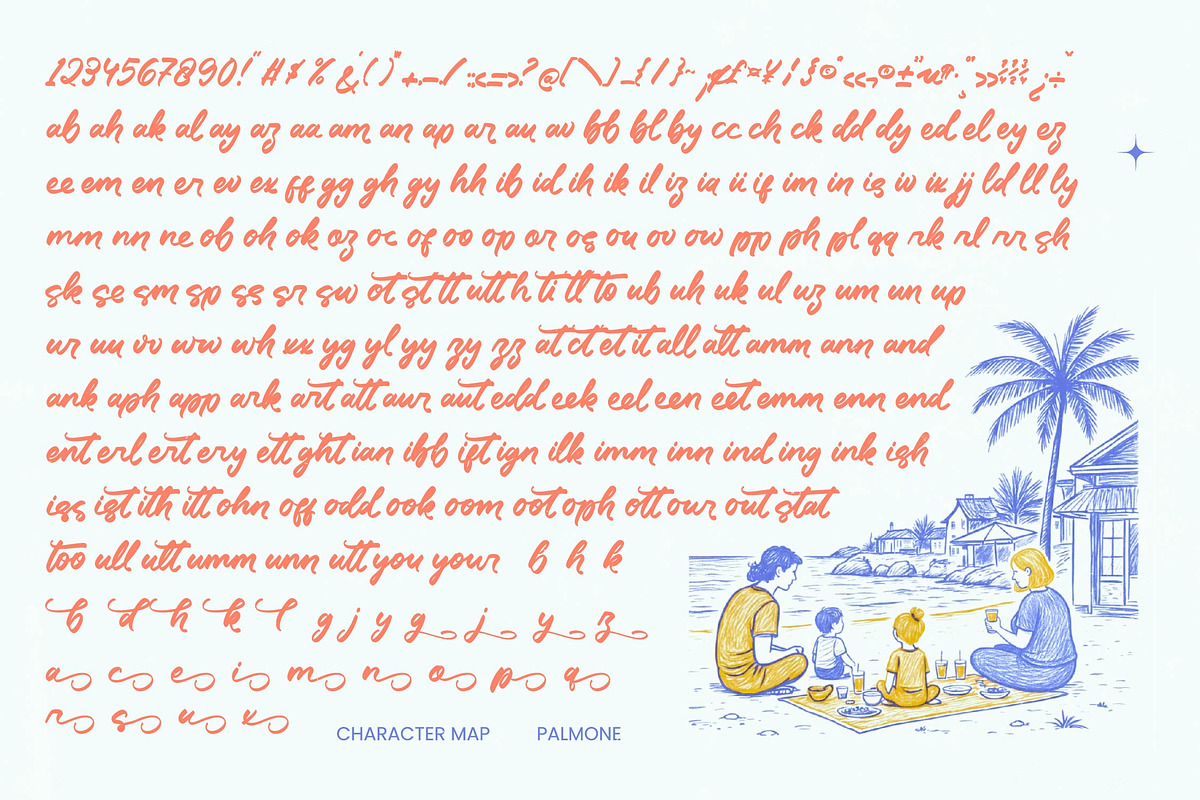 1234567890!"#$%&'()*+,-./:;<=>?@[\]_{|}~¡¢£¤¥¦§¨©ª«¬®¯°±"µ¶·¸º»¼½¾¿÷ˇ
ab ah ak al ay az aa am an ap ar au av bb bl by cc ch ck dd dy ed el ey ez
ee em en er ev ex ff gg gh gy hh ib id ih ik il iz ia ii if im in is iv ix jj ld ll ly
mm nn ne ob oh ok oz oc of oo op or os ou ov ow pp ph pl qq rk rl rr sh
sk se sm sp ss sr sw ot st tt utt h ti tl to ub uh uk ul uz um un up
ur uu vv ww wh xx yg yl yy zy zz at ct et it all alt amm ann and
ank aph app ark art att aur aut edd eek eel een eet emm enn end
ent erl ert ery ett ght ian ibb ift ign ilk imm inn ind ing ink ish
iss ist ith itt ohn off odd ook oom oot oph ott our out stat
too ull ult umm unn utt you your b h k
b d h k l g j y g j y z
a c e i m n o p q
r s u x
CHARACTER MAP PALMONE